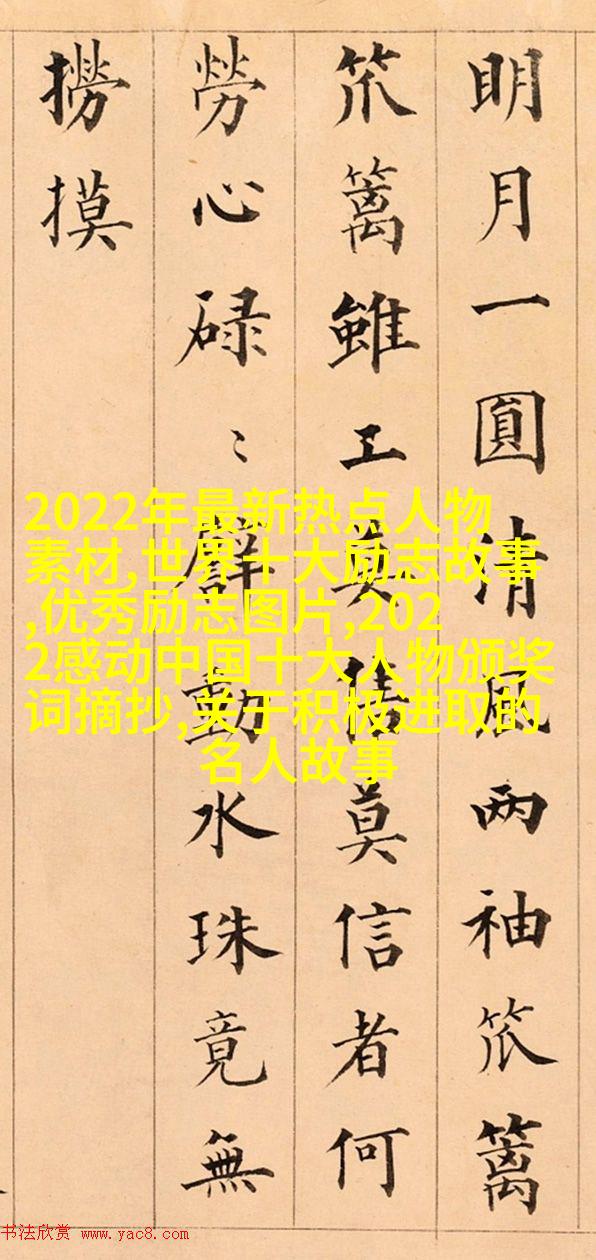 明月一圓清風两袖笊籬
笊籬雖工莫莫信者何
勞心碌〻動水珠竟無
撈摸
2022年最新热点人物
素材,世界十大励志故事
,优秀励志图片,202
2感动中国十大人物颁奖
词摘抄,关于积极进取的
名人故事
书法欣赏 www.yac8.com